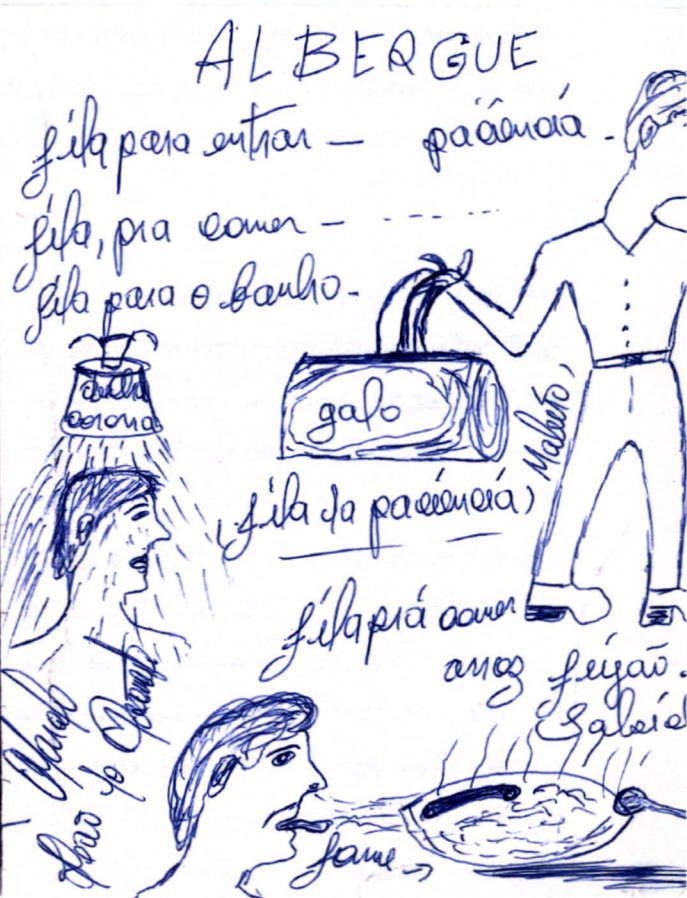 ALBERGUE
fila para entrar — paciência.
fila, pra comer — - - - - - -
fila para o banho -
ducha
corona
galo
Maleto,
(fila da paciência)
fila prá comer
arroz feijão.
João do
fome →